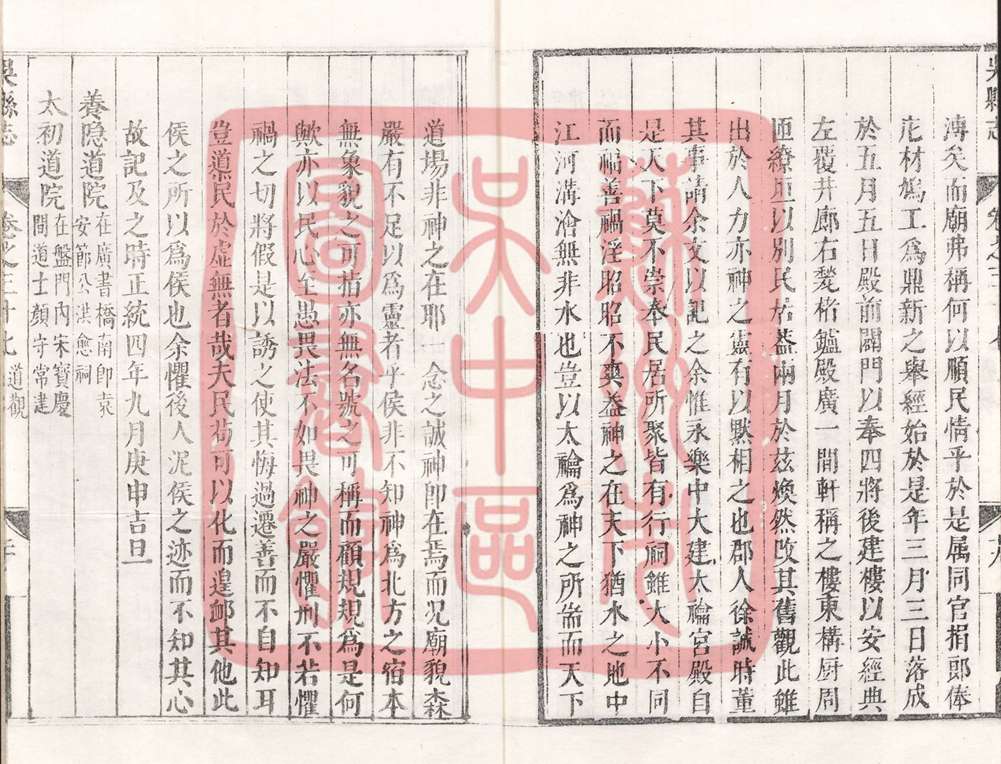 吳縣志
溥矣而廟弗稱何以順民情乎於是属同官捐郎俸
庀材鳩工爲鼎新之舉經始於是年三月三日落成
於五月五日殿前闢門以奉四將後建樓以安經典
左覆井廊右甃楮鑪殿廣一間軒稱之樓東構厨周
匝繚垣以别民居蓋兩月於茲煥然改其舊觀此雖
出於人力亦神之靈有以默相之也郡人徐誠時董
其事請余文以記之余惟永樂中大建太龢宮殿自
是天下莫不崇奉民居所聚皆有行祠雖大小不同
而福善禍淫昭昭不爽益神之在天下猶水之地中
江河溝澮無非水也豈以太龢爲神之所耑而天下
道場非神之在耶一念之誠神即在焉而况廟貌森
嚴有不足以爲靈者乎侯非不知神爲北方之宿本
無象貌之可㨖亦無名號之可稱而顧規規爲是何
歟亦以民心至愚畏法不如畏神之嚴懼刑不若懼
禍之切將假是以誘之使其悔過遷善而不自知耳
豈道民於虛無者哉夫民苟可以化而遑卹其他此
侯之所以爲侯也余懼後人泥侯之迹而不知其心
故記及之時正統四年九月庚申吉旦
養隐道院 在廣書橋南即袁
安節公洪愈祠
太初道院 在盤門內宋寶慶
間道士顏守常建
吳縣志
卷之三十七
道觀
蘇州市
吳中區
圖書館